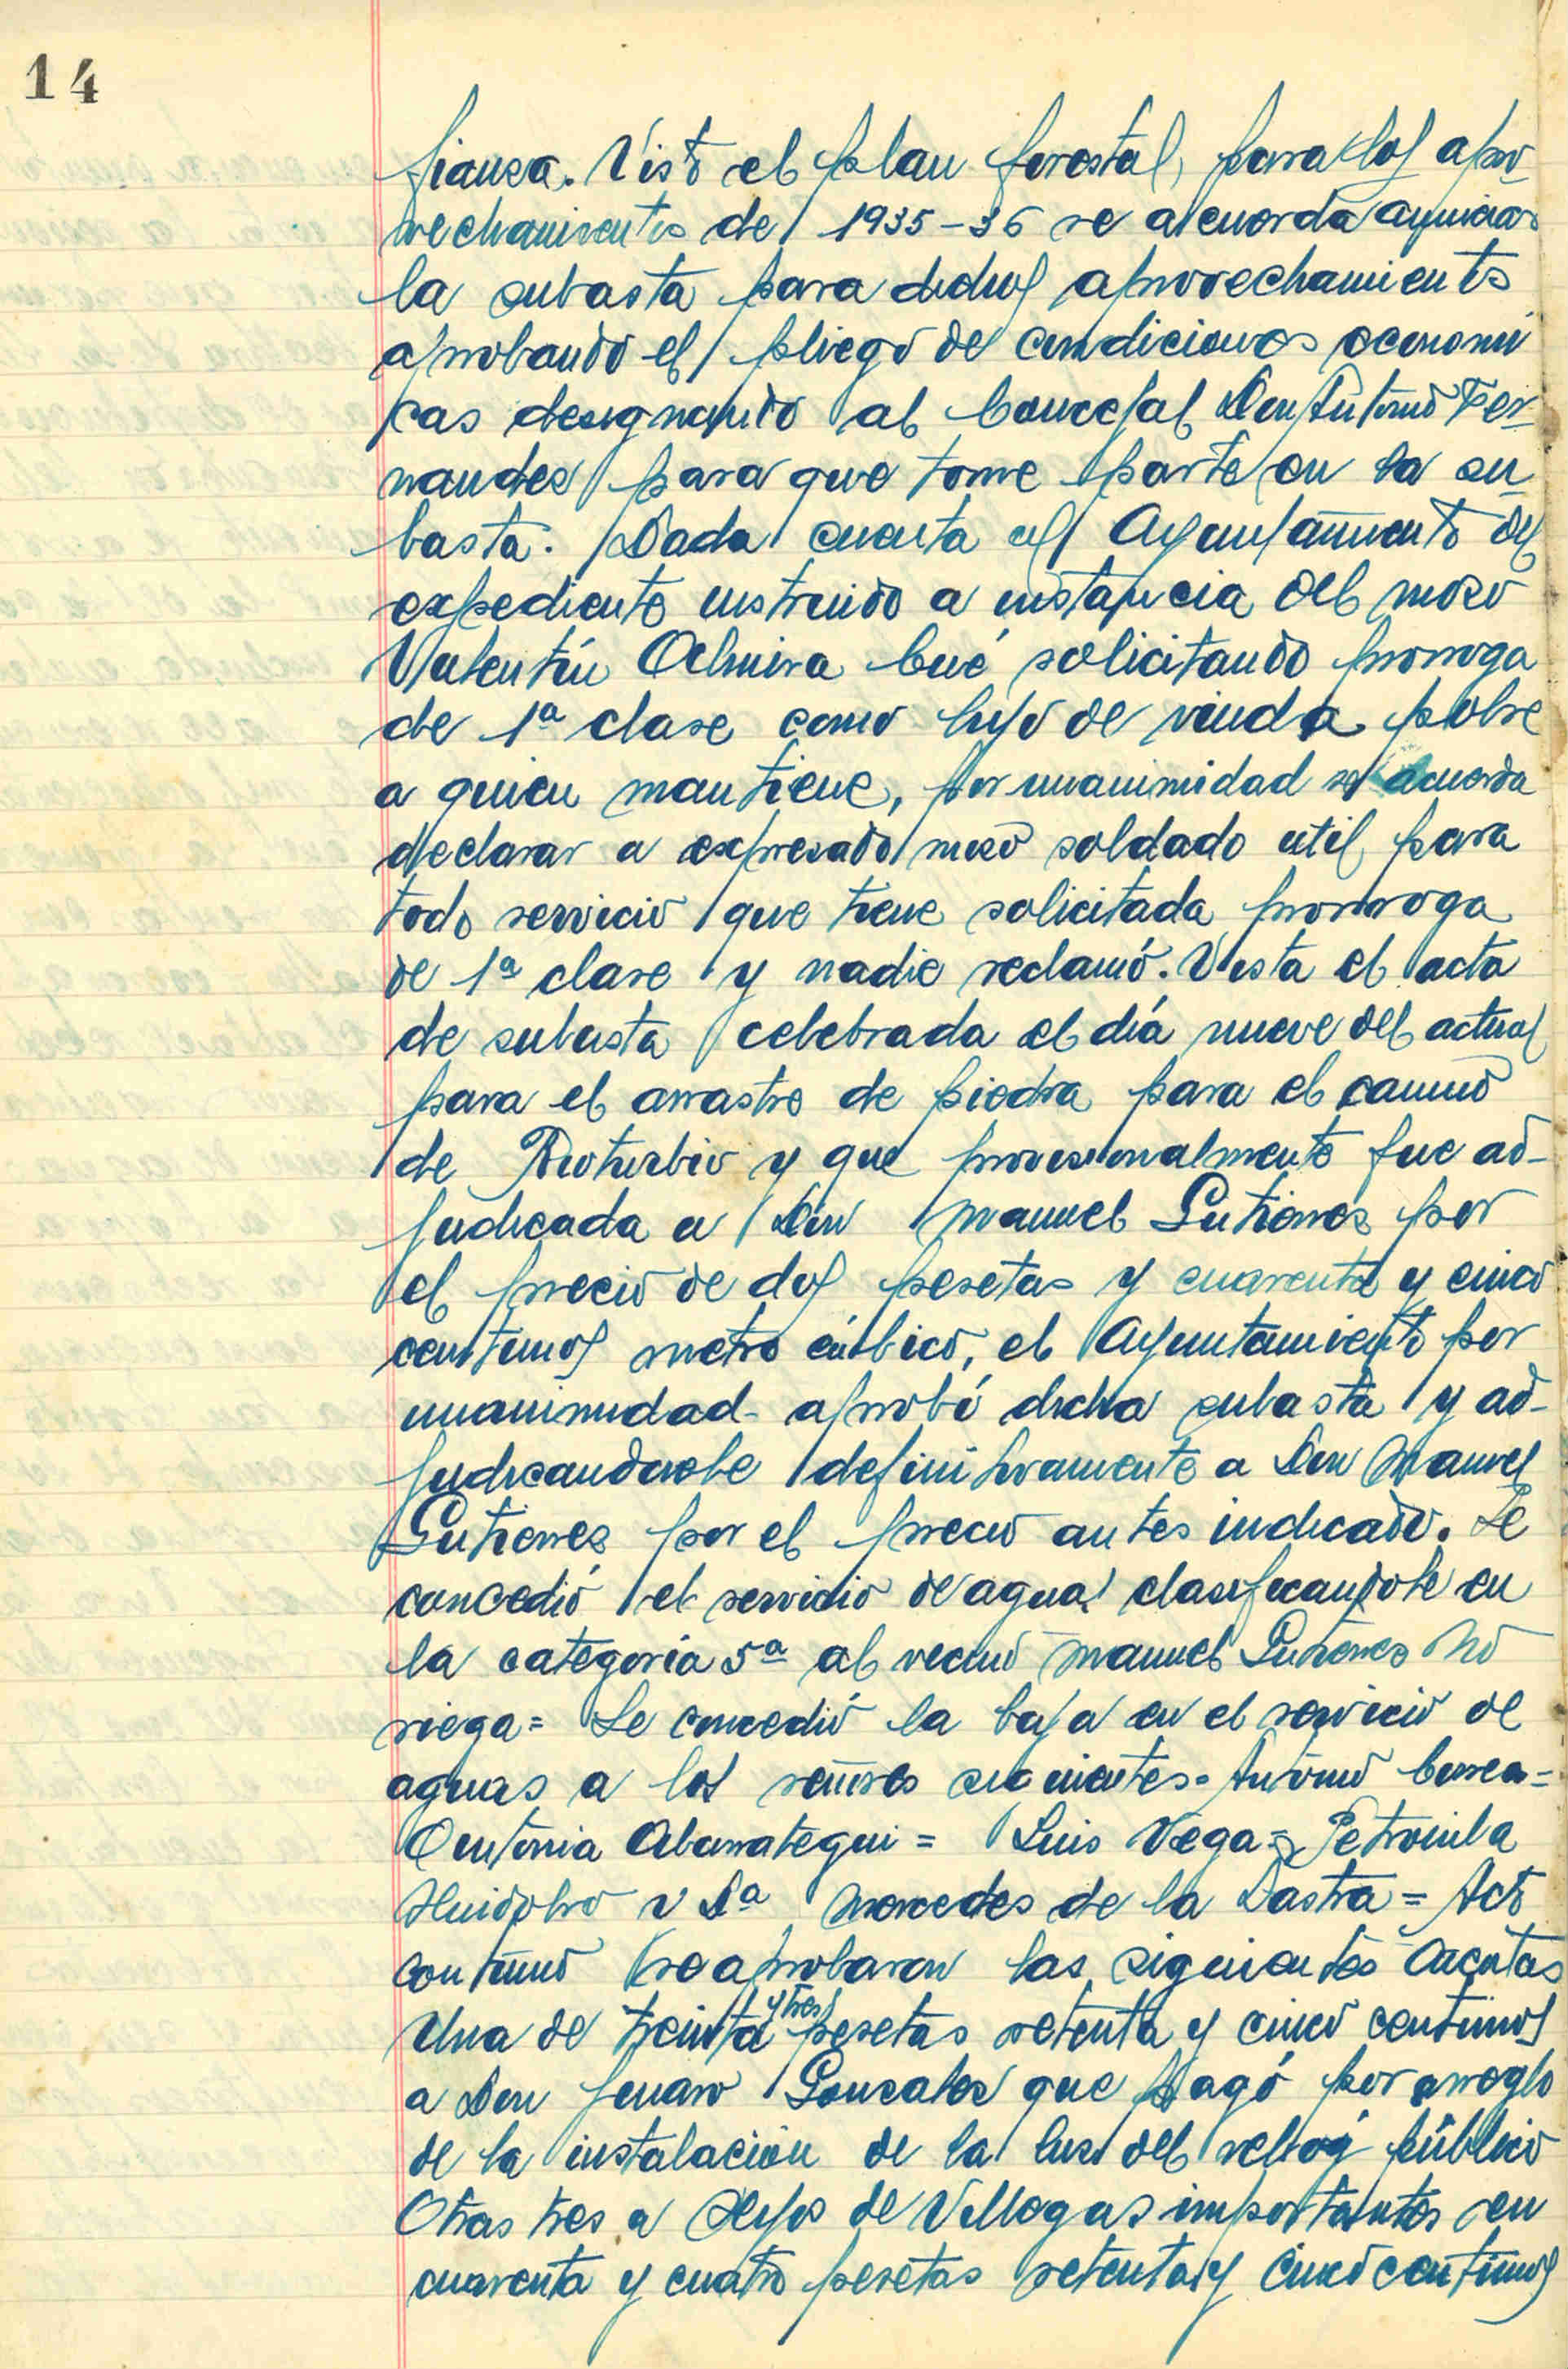 14
fianza. Visto el plan forestal, para los apro-
vechamientos de 1935-36 se acuerda anunciar
la subasta para dichos aprovechamientos
aprobando el pliego de condiciones economi
cas designando al Concejal Don Antonio Fer-
nandez para que tome parte en la su-
basta. Dada cuenta al Ayuntamiento del
expediente instruido a instancia del mozo
Valentín Olmira Cué solicitando prorroga
de 1ª clase como hijo de viuda pobre
a quien mantiene, por unanimidad se acuerda
declarar a expresado mozo soldado util para
todo servicio que tiene solicitada prorroga
de 1ª clase y nadie reclamó. Vista el acta
de subasta celebrada el día nueve del actual
para el arrastre de piedra para el camino
de Rioturbio y que provisionalmente fue ad-
judicada a Don Manuel Gutierrez por
el precio de dos pesetas y cuarenta y cinco
centimos metro cúbico, el Ayuntamiento por
unanimidad aprobó dicha subasta y ad-
judicandosele definitivamente a Don Manuel
Gutierrez por el precio antes indicado. Se
concedió el servicio de agua clasificandole en
la categoria 5ª al vecino Manuel Gutierrez No
riega = Se concedió la baja en el servicio de
aguas a los señores siguientes = Antonio Correa =
Antonia Abarrategui = Luis Vega = Petronila
Huidobro y Dª Mercedes de la Lastra = Acto
continuo se aprobaron las siguientes cuentas
Una de treinta y tres pesetas setenta y cinco centimos
a Don Jenaro Gonzalez que pagó por arreglo
de la instalación de la luz del reloj público
Otras tres a Hijos de Villegas importantes en
cuarenta y cuatro pesetas setenta y cinco centimos